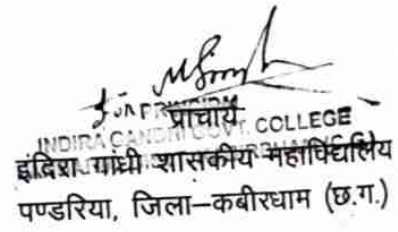 प्राचार्य
INDIRA GANDHI GOVT. COLLEGE
इंदिरा गांधी शासकीय महाविद्यालय
पण्डरिया, जिला-कबीरधाम (छ.ग.)